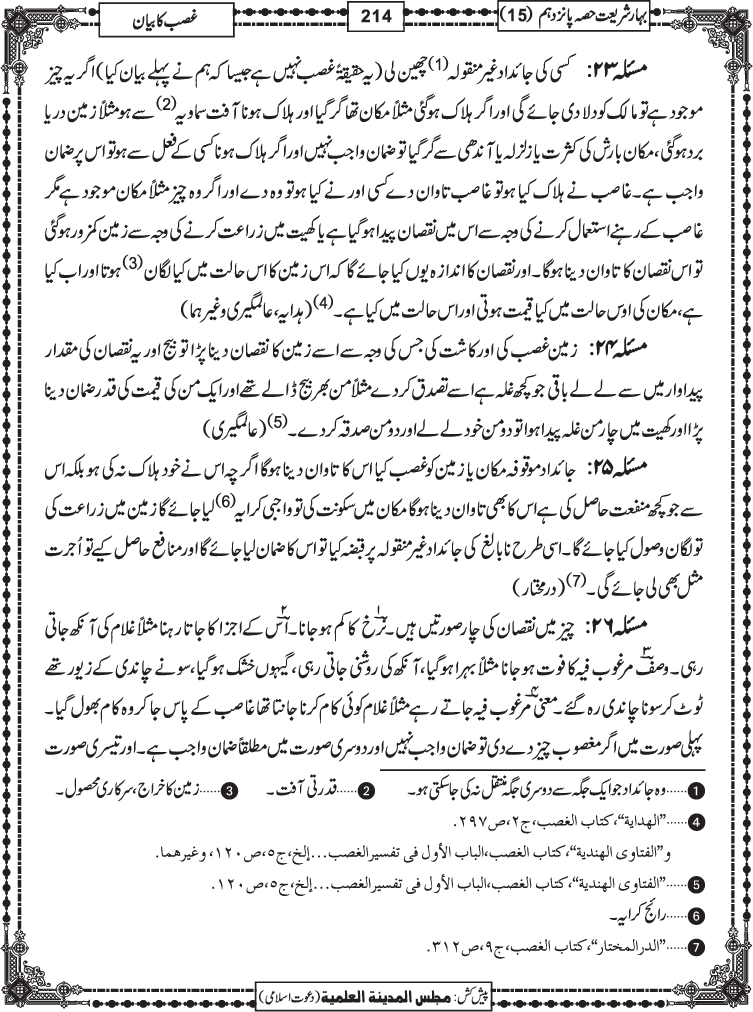 بہارِ شریعت حصہ پانزدہم (15)
214
غصب کا بیان
مسئلہ ۲۳: کسی کی جائداد غیر منقولہ (1) چھین لی (یہ حقیقۃً غصب نہیں ہے جیسا کہ ہم نے پہلے بیان کیا) اگر یہ چیز
موجود ہے تو مالک کو دلا دی جائے گی اور اگر ہلاک ہوگئی مثلاً مکان تھا گر گیا اور ہلاک ہونا آفت سماویہ (2) سے ہو مثلاً زمین دریا
برد ہوگئی، مکان بارش کی کثرت یا زلزلہ یا آندھی سے گر گیا تو ضمان واجب نہیں اور اگر ہلاک ہونا کسی کے فعل سے ہو تو اس پر ضمان
واجب ہے۔ غاصب نے ہلاک کیا ہو تو غاصب تاوان دے کسی اور نے کیا ہو تو وہ دے اور اگر وہ چیز مثلاً مکان موجود ہے مگر
غاصب کے رہنے استعمال کرنے کی وجہ سے اس میں نقصان پیدا ہو گیا ہے یا کھیت میں زراعت کرنے کی وجہ سے زمین کمزور ہوگئی
تو اس نقصان کا تاوان دینا ہوگا۔ اور نقصان کا اندازہ یوں کیا جائے گا کہ اس زمین کا اس حالت میں کیا لگان (3) ہوتا اور اب کیا
ہے، مکان کی اوس حالت میں کیا قیمت ہوتی اور اس حالت میں کیا ہے۔ (4) (ہدایہ، عالمگیری وغیرہما)
مسئلہ ۲۴: زمین غصب کی اور کاشت کی جس کی وجہ سے اسے زمین کا نقصان دینا پڑا تو بیج اور یہ نقصان کی مقدار
پیداوار میں سے لے لے باقی جو کچھ غلہ ہے اسے تصدق کردے مثلاً من بھر بیج ڈالے تھے اور ایک من کی قیمت کی قدر ضمان دینا
پڑا اور کھیت میں چار من غلہ پیدا ہوا تو دو من خود لے لے اور دو من صدقہ کردے۔ (5) (عالمگیری)
مسئلہ ۲۵: جائداد موقوفہ مکان یا زمین کو غصب کیا اس کا تاوان دینا ہوگا اگرچہ اس نے خود ہلاک نہ کی ہو بلکہ اس
سے جو کچھ منفعت حاصل کی ہے اس کا بھی تاوان دینا ہوگا مکان میں سکونت کی تو واجبی کرایہ (6) لیا جائے گا زمین میں زراعت کی
تو لگان وصول کیا جائے گا۔ اسی طرح نابالغ کی جائداد غیر منقولہ پر قبضہ کیا تو اس کا ضمان لیا جائے گا اور منافع حاصل کیے تو اُجرت
مثل بھی لی جائے گی۔ (7) (درمختار)
مسئلہ ۲۶: چیز میں نقصان کی چار صورتیں ہیں۔ ۱ نرخ کا کم ہو جانا۔ ۲ اس کے اجزا کا جاتا رہنا مثلاً غلام کی آنکھ جاتی
رہی۔ ۳ وصف مرغوب فیہ کا فوت ہو جانا مثلاً بہرا ہوگیا، آنکھ کی روشنی جاتی رہی، گیہوں خشک ہوگیا، سونے چاندی کے زیور تھے
ٹوٹ کر سونا چاندی رہ گئے۔ ۴ معنی مرغوب فیہ جاتے رہے مثلاً غلام کوئی کام کرنا جانتا تھا غاصب کے پاس جا کر وہ کام بھول گیا۔
پہلی صورت میں اگر مغصوب چیز دے دی تو ضمان واجب نہیں اور دوسری صورت میں مطلقاً ضمان واجب ہے۔ اور تیسری صورت
1 ......وہ جائداد جو ایک جگہ سے دوسری جگہ منتقل نہ کی جاسکتی ہو۔ 2 ......قدرتی آفت۔ 3 ......زمین کا خراج، سرکاری محصول۔
4 ......"الهداية"، كتاب الغصب، ج۲، ص۲۹۷.
و "الفتاوى الهندية"، كتاب الغصب، الباب الأول في تفسير الغصب...إلخ، ج٥، ص۱۲۰، وغيرهما.
5 ......"الفتاوى الهندية"، كتاب الغصب، الباب الأول في تفسير الغصب...إلخ، ج٥، ص۱۲۰.
6 ......رائج کرایہ۔
7 ......"الدرالمختار"، كتاب الغصب، ج۹، ص۳۱۲.
پیش کش: مجلس المدينة العلمية (دعوت اسلامی)